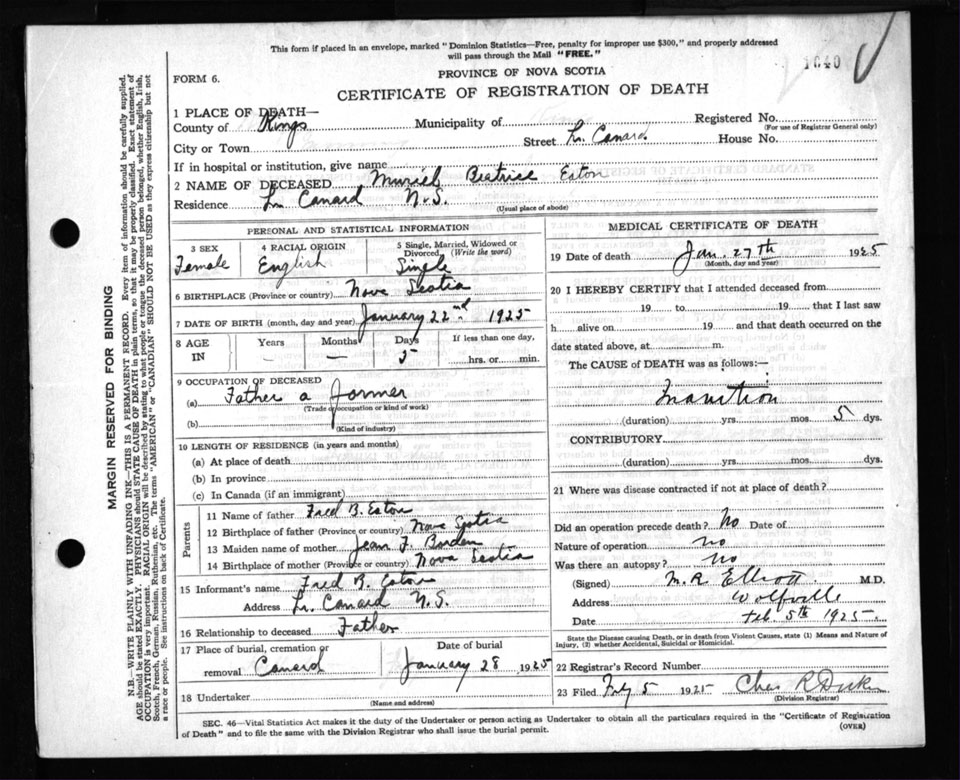 This form if placed in an envelope, marked "Dominion Statistics—Free, penalty for improper use $300," and properly addressed
will pass through the Mail "FREE."
1040
FORM 6.
PROVINCE OF NOVA SCOTIA
CERTIFICATE OF REGISTRATION OF DEATH
1 PLACE OF DEATH—
County of Kings Municipality of Registered No.
(For use of Registrar General only)
City or Town Street Lr. Canard House No.
If in hospital or institution, give name
2 NAME OF DECEASED Muriel Beatrice Eaton
Residence Lr Canard N.S.
(Usual place of abode)
PERSONAL AND STATISTICAL INFORMATION
3 SEX 4 RACIAL ORIGIN 5 Single, Married, Widowed or
Divorced (Write the word)
Female English Single
6 BIRTHPLACE (Province or country) Nova Scotia
7 DATE OF BIRTH (month, day and year) January 22nd 1925
8 AGE Years Months Days If less than one day,
IN — — 5 hrs. or min.
9 OCCUPATION OF DECEASED
(a) Father a Farmer
(Trade or occupation or kind of work)
(b)
(Kind of industry)
10 LENGTH OF RESIDENCE (in years and months)
(a) At place of death
(b) In province
(c) In Canada (if an immigrant)
Parents
11 Name of father Fred B. Eaton
12 Birthplace of father (Province or country) Nova Scotia
13 Maiden name of mother Jean F. Borden
14 Birthplace of mother (Province or country) Nova Scotia
15 Informant's name Fred B. Eaton
Address Lr. Canard N.S.
16 Relationship to deceased Father
17 Place of burial, cremation or Date of burial
removal Canard January 28 1925
18 Undertaker
(Name and address)
MEDICAL CERTIFICATE OF DEATH
19 Date of death Jan. 27th 1925
(Month, day and year)
20 I HEREBY CERTIFY that I attended deceased from
19 to 19 that I last saw
h alive on 19 and that death occurred on the
date stated above, at m.
The CAUSE OF DEATH was as follows:—
Inanition
(duration) yrs. mos. 5 dys.
CONTRIBUTORY
(duration) yrs. mos. dys.
21 Where was disease contracted if not at place of death?
Did an operation precede death? No Date of
Nature of operation no
Was there an autopsy? no
(Signed) M. R. Elliott M.D.
Address Wolfville
Date Feb. 5th 1925
State the Disease causing Death, or in death from Violent Causes, state (1) Means and Nature of
Injury, (2) whether Accidental, Suicidal or Homicidal.
22 Registrar's Record Number
23 Filed 5 1925 Chas R
(Division Registrar)
SEC. 46—Vital Statistics Act makes it the duty of the Undertaker or person acting as Undertaker to obtain all the particulars required in the "Certificate of Registration
of Death" and to file the same with the Division Registrar who shall issue the burial permit.
(OVER)
MARGIN RESERVED FOR BINDING
N.B.—WRITE PLAINLY WITH UNFADING INK—THIS IS A PERMANENT RECORD. Every item of information should be carefully supplied.
AGE should be stated EXACTLY. PHYSICIANS should STATE CAUSE OF DEATH in plain terms, so that it may be properly classified. Exact statement of
OCCUPATION is very important. RACIAL ORIGIN will be described by stating to what people or tongue the deceased person belonged, whether English, Irish,
Scotch, French, German, Russian, Ruthenian, etc. The terms "AMERICAN" or "CANADIAN" SHOULD NOT BE USED as they express citizenship but not
a race or people. See instructions on back of Certificate.